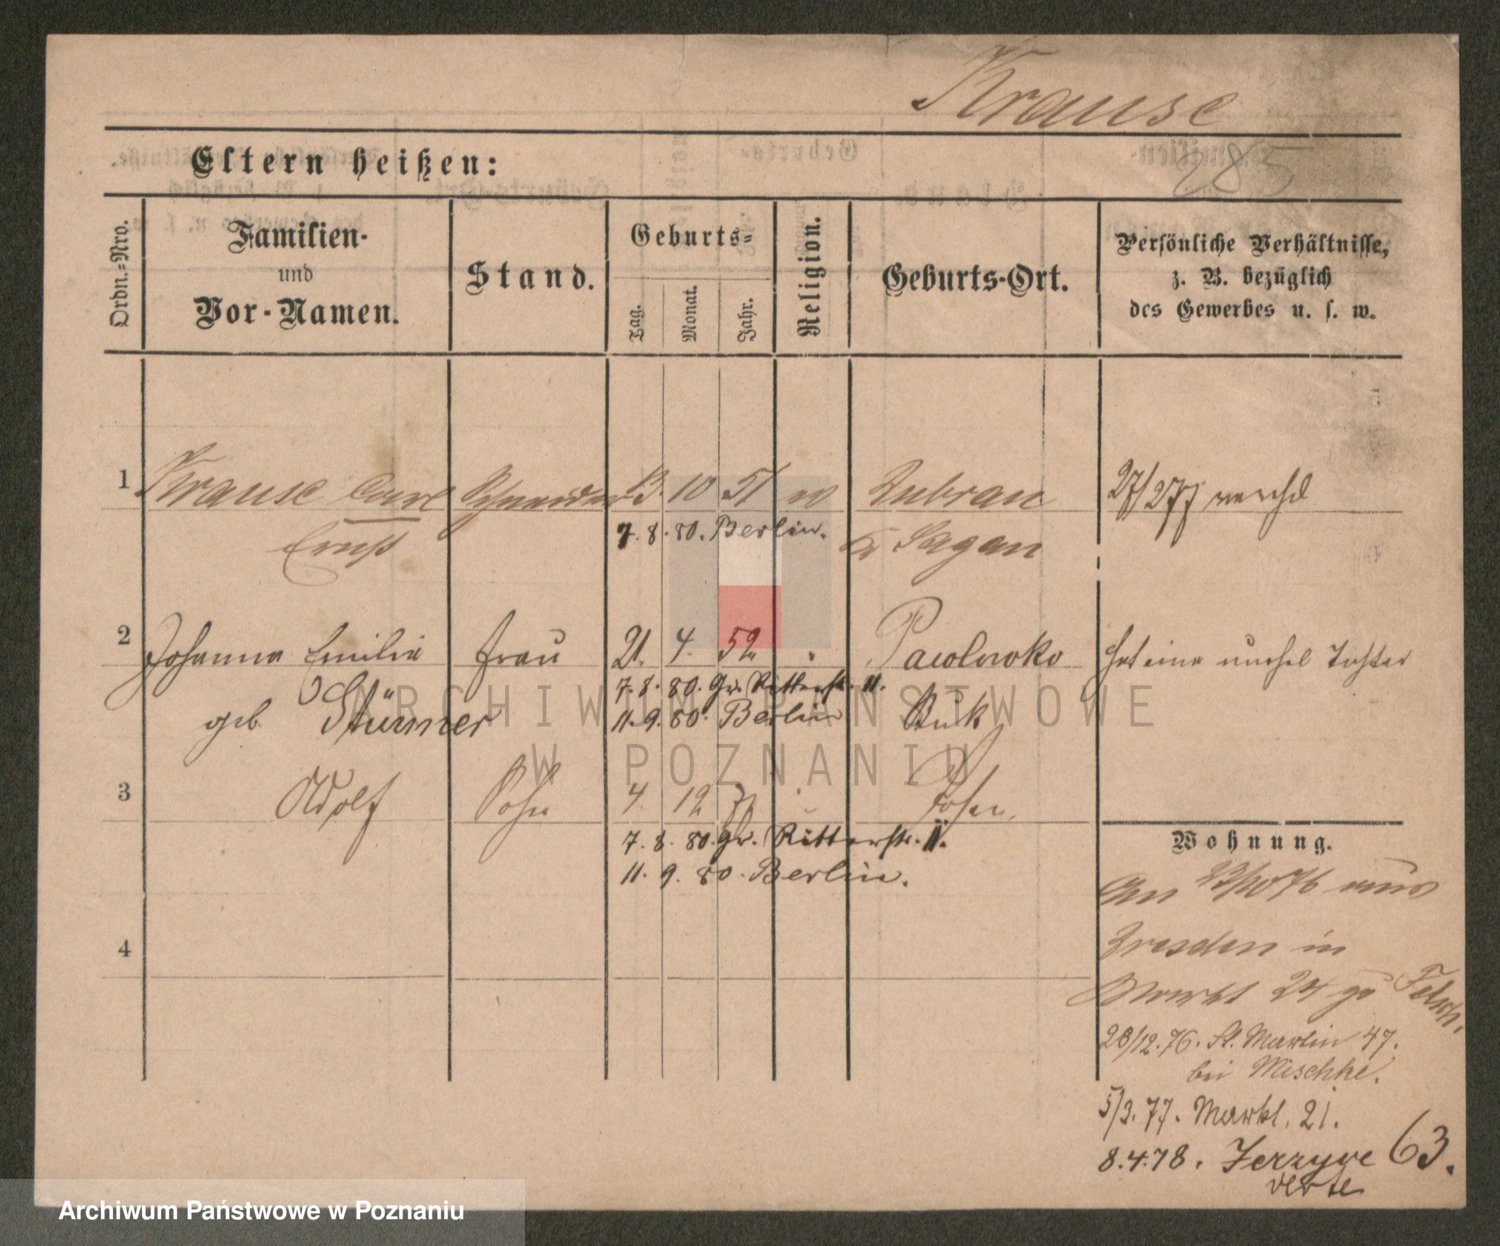 Krause
285
Eltern heißen:
Ordn.-Nro.
Familien-
und
Vor-Namen.
Stand.
Geburts-
Tag.
Monat.
Jahr.
Religion.
Geburts-Ort.
Persönliche Verhältnisse,
z. B. bezüglich
des Gewerbes u. s. w.
1 Krause Carl Schneider 3. 10 51 27/2 77
Ernst 7. 8. 80. Berlin. Sagan
2 Johanna Emilie Frau 21. 4. 52 hat eine Tochter
7. 8. 80. Gr. Ritterstr. 11.
geb. Stürmer 11. 9. 80. Berlin Buk
3 Adolf Sohn 4 12 Posen.
7. 8. 80. Gr. Ritterstr. 11.
11. 9. 80. Berlin.
4
Wohnung.
An 23/10 76 aus
Dresden in
Markt 24
28/12. 76. St. Martin 47.
bei Mischke.
5/3. 77. Markt. 21.
8. 4. 78. Jerzyce 63.
verte
ARCHIWUM PAŃSTWOWE
W POZNANIU
Archiwum Państwowe w Poznaniu